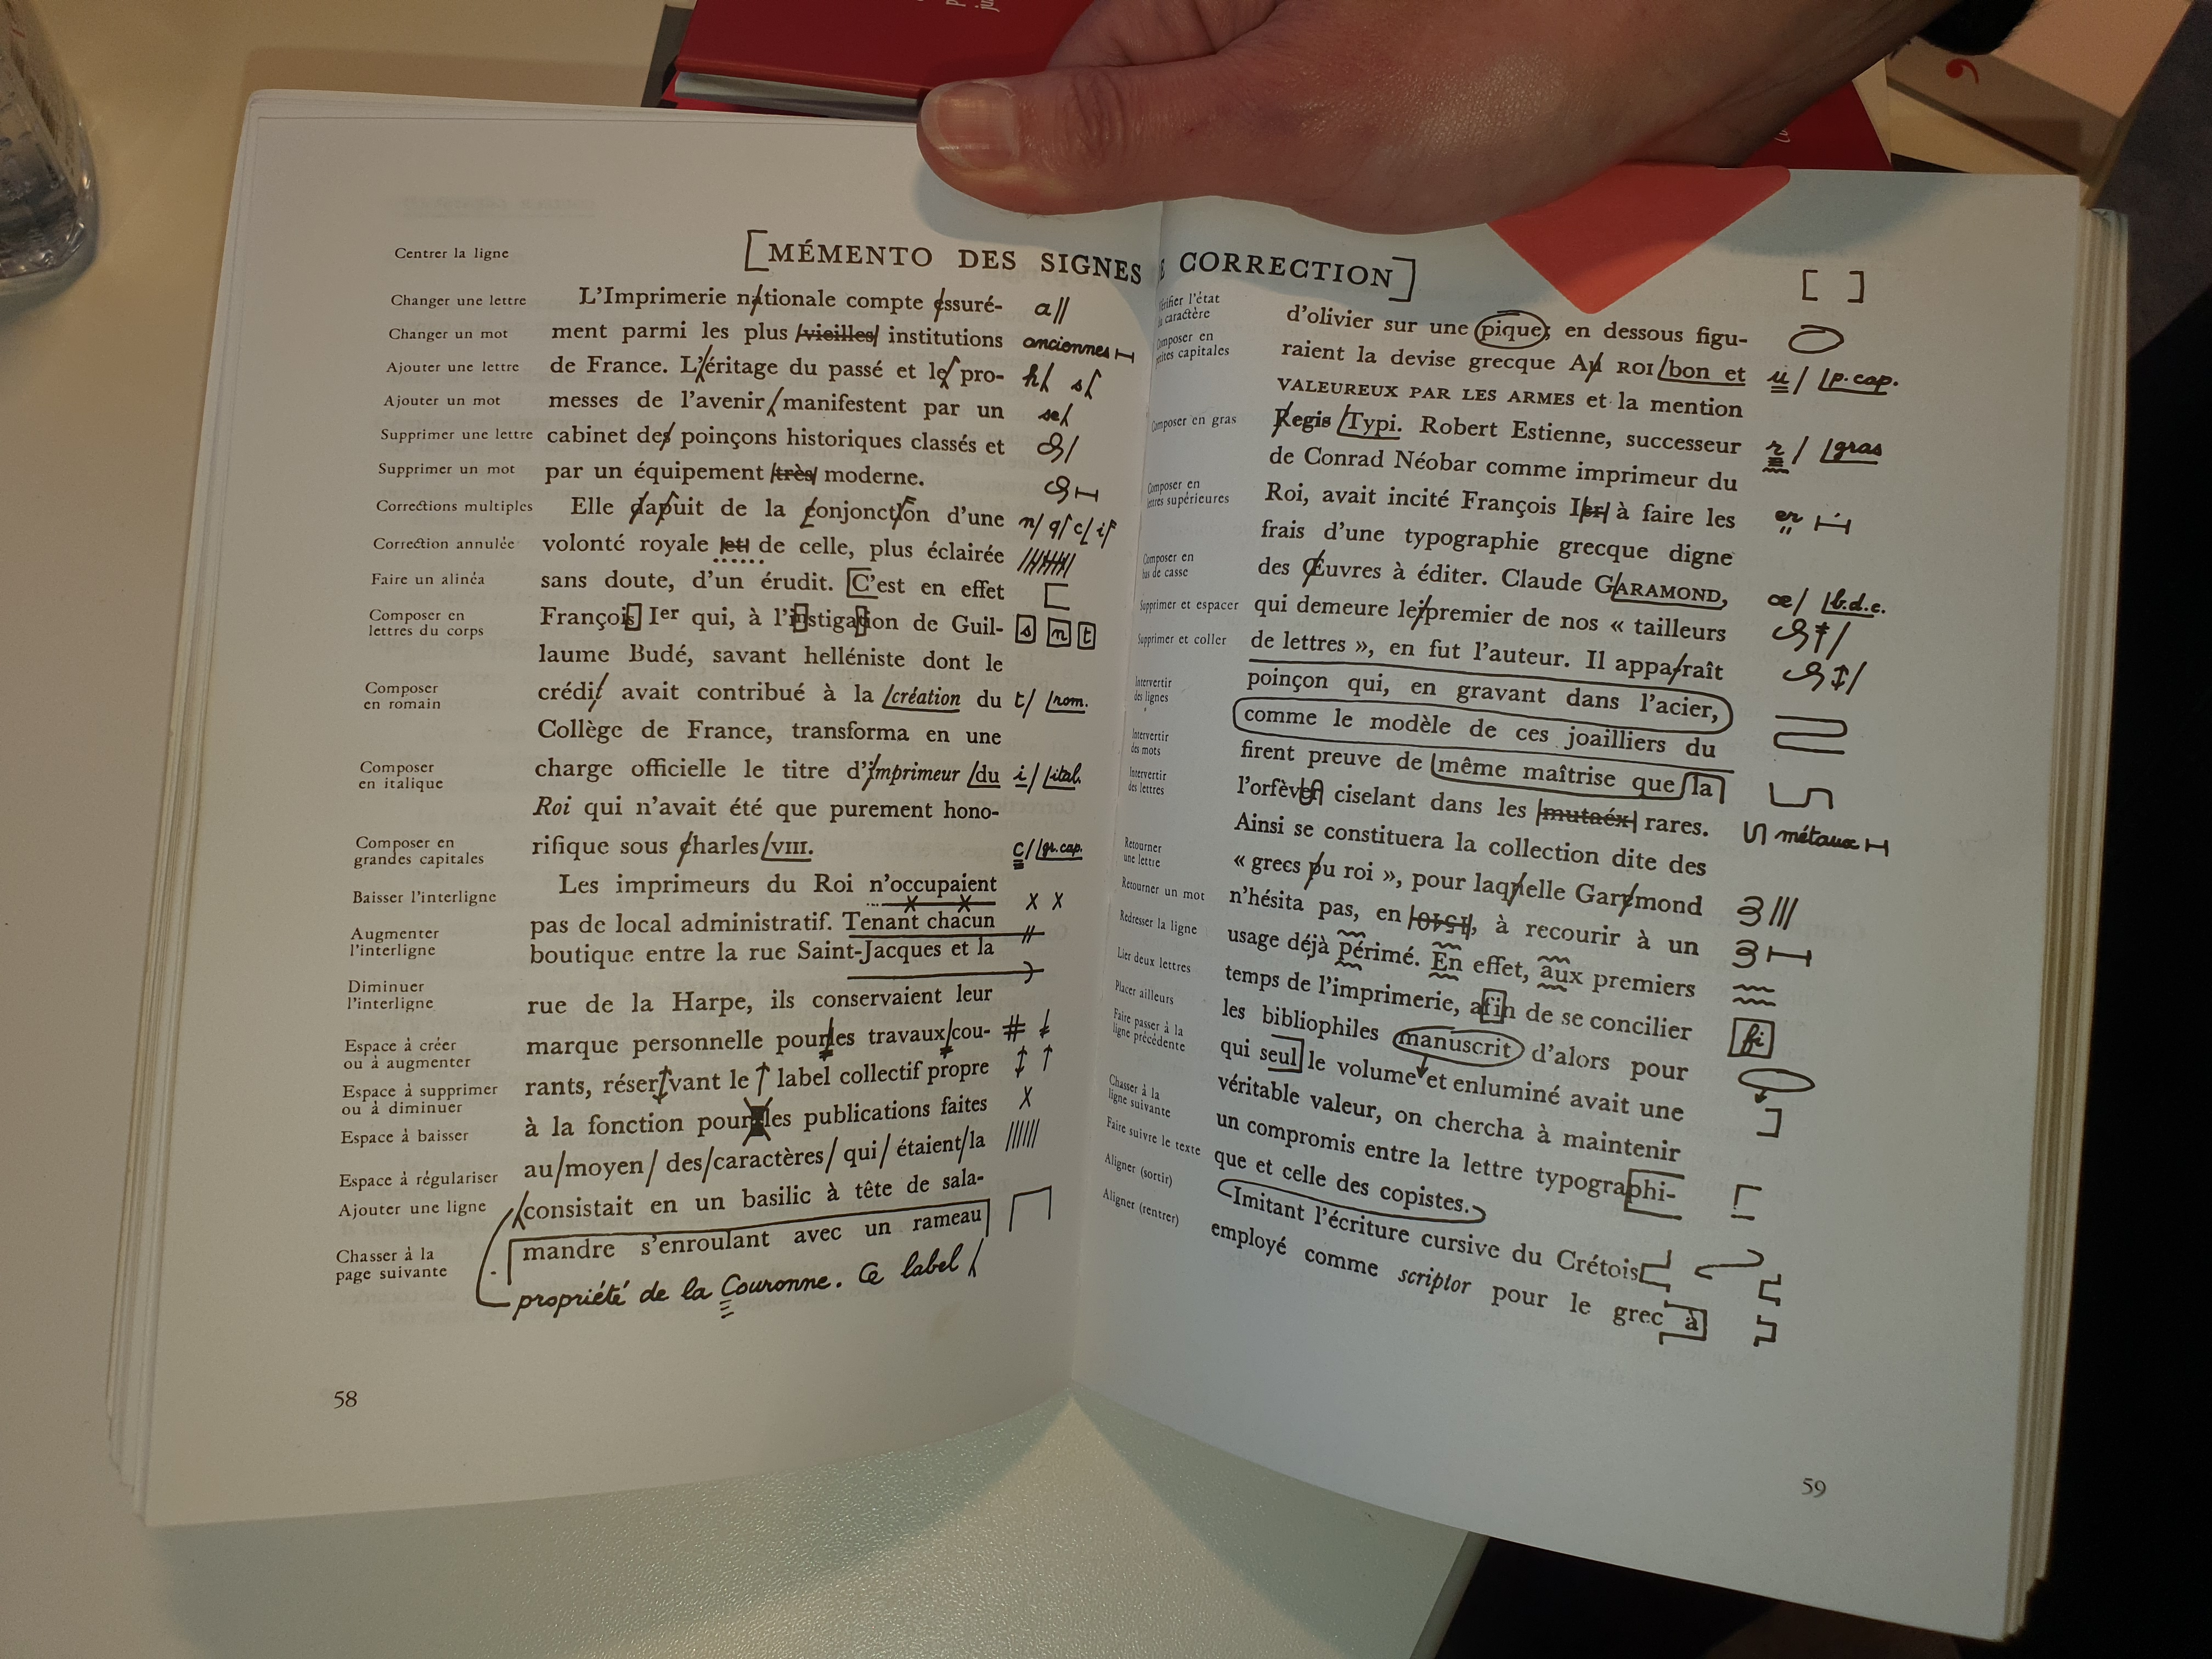 [MÉMENTO DES SIGNES CORRECTION]
Centrer la ligne
Changer une lettre
Changer un mot
Ajouter une lettre
Ajouter un mot
Supprimer une lettre
Supprimer un mot
Corrections multiples
Correction annulée
Faire un alinéa
Composer en
lettres du corps
Composer
en romain
Composer
en italique
Composer en
grandes capitales
Baisser l'interligne
Augmenter
l'interligne
Diminuer
l'interligne
Espace à créer
ou à augmenter
Espace à supprimer
ou à diminuer
Espace à baisser
Espace à régulariser
Ajouter une ligne
Chasser à la
page suivante
L'Imprimerie nationale compte essuré- a//
ment parmi les plus vieilles institutions anciennes
de France. L'éritage du passé et le pro- h s
messes de l'avenir manifestent par un se
cabinet des poinçons historiques classés et
par un équipement très moderne.
Elle dapuit de la conjonction d'une n/ q c/ i
volonté royale et de celle, plus éclairée
sans doute, d'un érudit. C'est en effet
François Ier qui, à l'instigation de Guil- s n t
laume Budé, savant helléniste dont le
crédit avait contribué à la création du t/ rom.
Collège de France, transforma en une
charge officielle le titre d'imprimeur du i/ ital.
Roi qui n'avait été que purement hono-
rifique sous charles VIII. c/ gr.cap.
Les imprimeurs du Roi n'occupaient X X
pas de local administratif. Tenant chacun
boutique entre la rue Saint-Jacques et la
rue de la Harpe, ils conservaient leur
marque personnelle pour les travaux cou- #
rants, réservant le label collectif propre
à la fonction pour les publications faites X
au/moyen/des/caractères/qui/étaient/la //////
consistait en un basilic à tête de sala-
mandre s'enroulant avec un rameau
propriété de la Couronne. Ce label
58
Vérifier l'état
du caractère
Composer en
petites capitales
Composer en gras
Composer en
lettres supérieures
Composer en
bas de casse
Supprimer et espacer
Supprimer et coller
Intervertir
des lignes
Intervertir
des mots
Intervertir
des lettres
Retourner
une lettre
Retourner un mot
Redresser la ligne
Lier deux lettres
Placer ailleurs
Faire passer à la
ligne précédente
Chasser à la
ligne suivante
Faire suivre le texte
Aligner (sortir)
Aligner (rentrer)
[ ]
d'olivier sur une pique; en dessous figu-
raient la devise grecque Au ROI bon et u/ p.cap.
VALEUREUX PAR LES ARMES et la mention
Regis Typi. Robert Estienne, successeur r/ gras
de Conrad Néobar comme imprimeur du
Roi, avait incité François Ier à faire les er
frais d'une typographie grecque digne
des Œuvres à éditer. Claude GARAMOND, œ/ b.d.c.
qui demeure le premier de nos « tailleurs
de lettres », en fut l'auteur. Il appa raît
poinçon qui, en gravant dans l'acier,
comme le modèle de ces joailliers du
firent preuve de même maîtrise que la
l'orfèver ciselant dans les mutaéx rares. métaux
Ainsi se constituera la collection dite des
« grecs pu roi », pour laqnelle Garamond ///
n'hésita pas, en 1540, à recourir à un
usage déjà périmé. En effet, aux premiers
temps de l'imprimerie, afin de se concilier fi
les bibliophiles manuscrit d'alors pour
qui seul le volume et enluminé avait une
véritable valeur, on chercha à maintenir
un compromis entre la lettre typographi-
que et celle des copistes.
Imitant l'écriture cursive du Crétois
employé comme scriptor pour le grec à
59